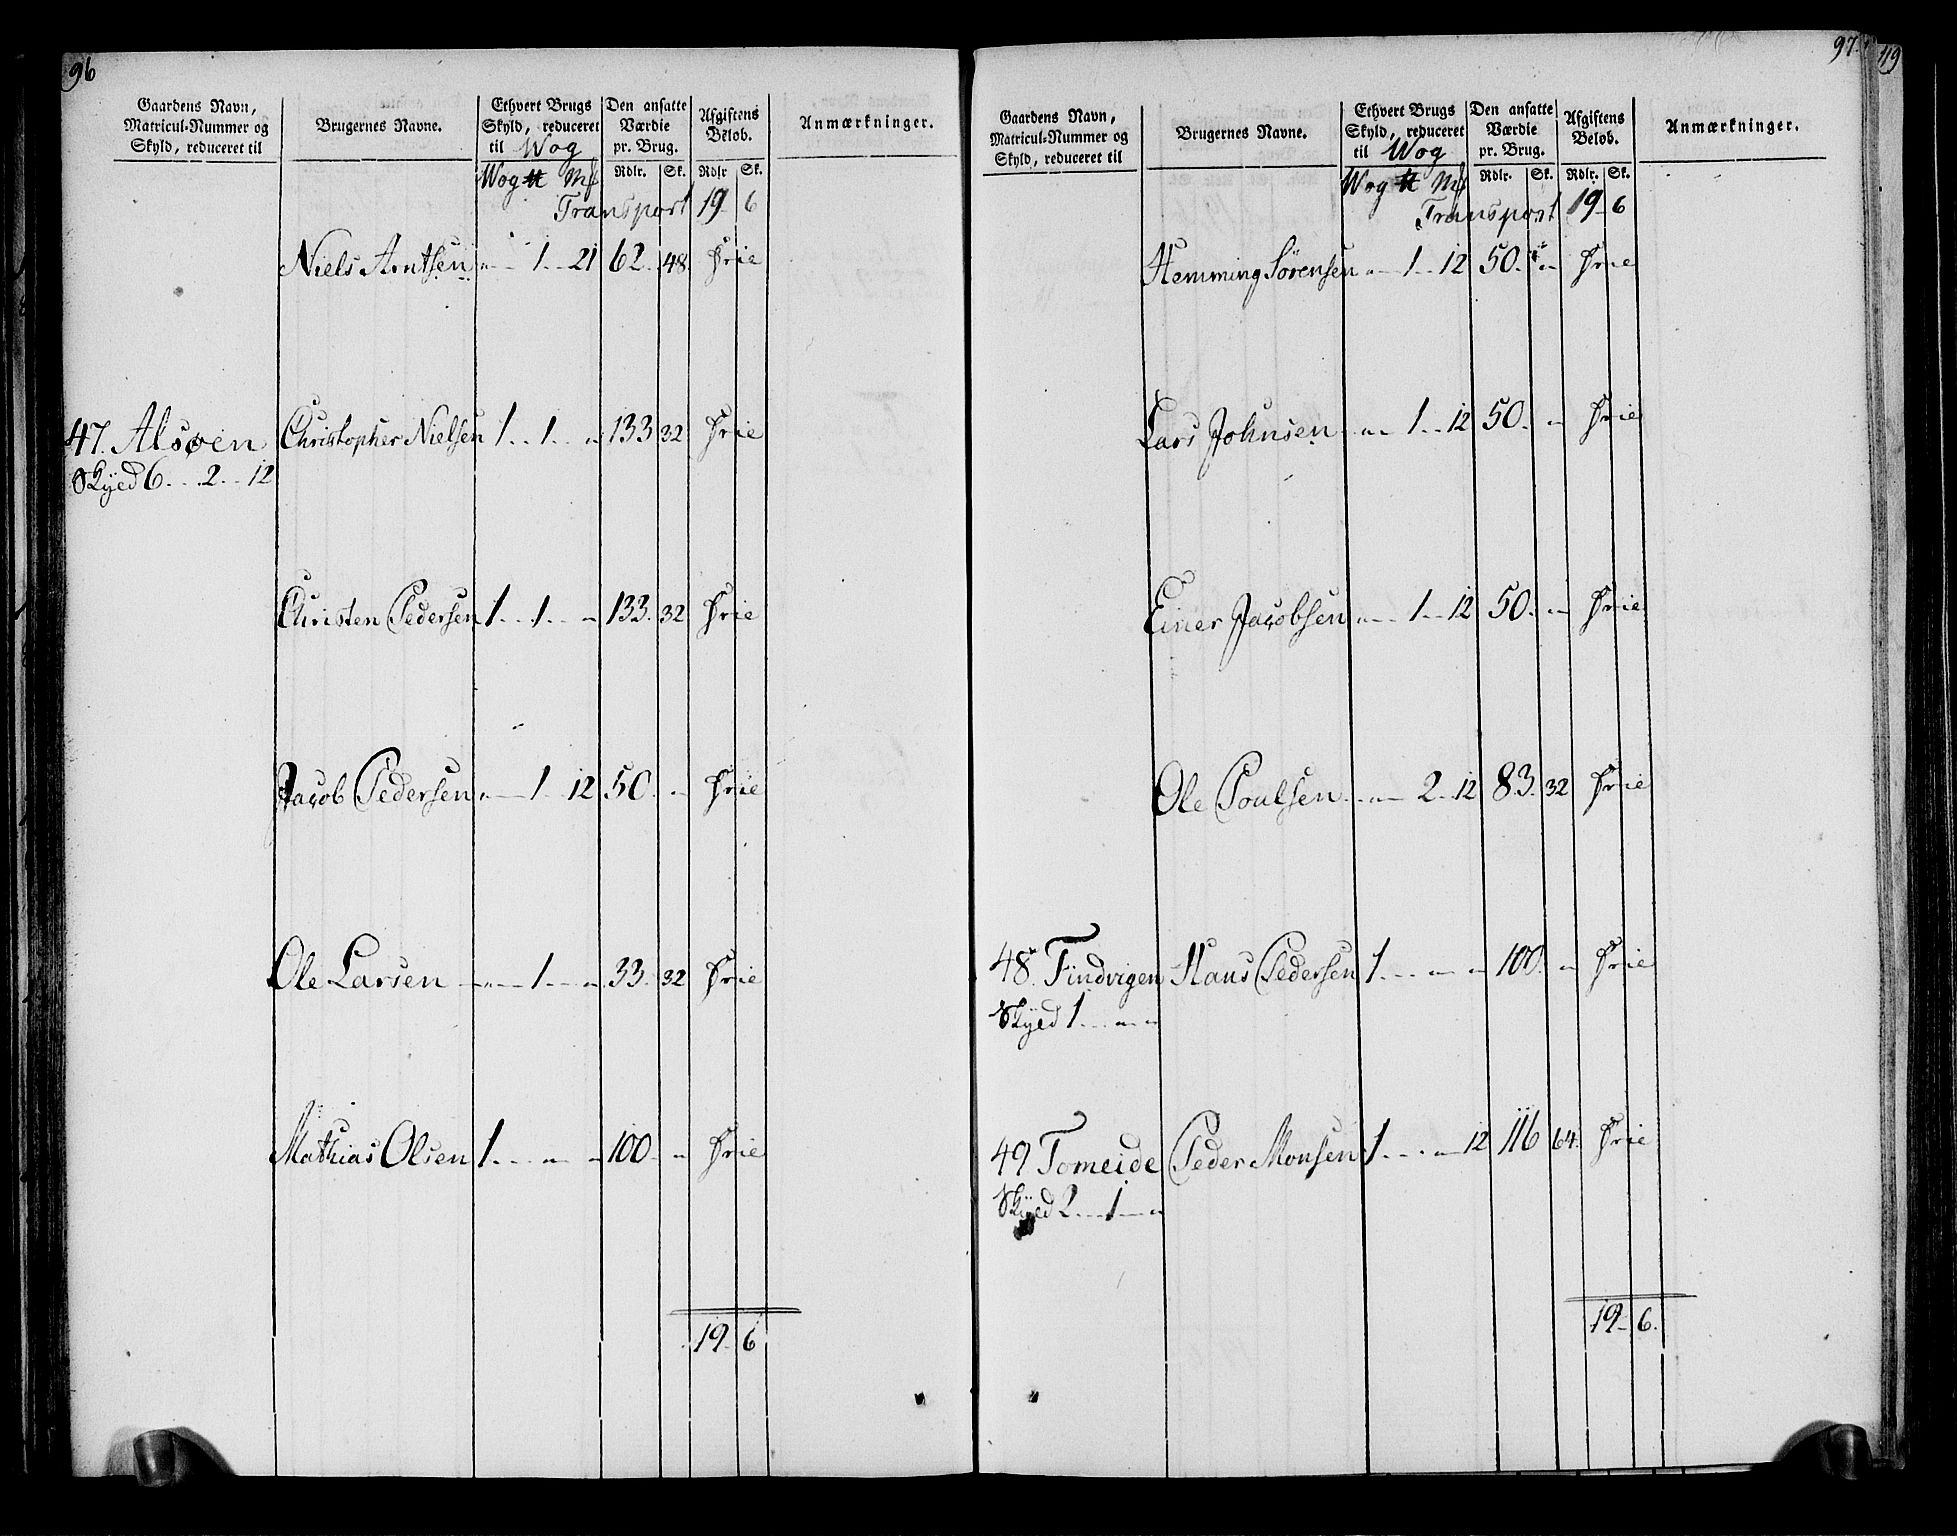 96
Gaardens Navn, Matricul-Nummer og Skyld, reduceret til
Brugernes Navne.
Ethvert Brugs Skyld, reduceret til Wog
Den ansatte Værdie pr. Brug.
Afgiftens Beløb.
Anmærkninger.
Wog ℔ Mk Rdlr. Sk. Rdlr Sk.
Transport 19 6
Niels Arntsen „ 1 21 62 48 Frie
47. Alsøen Christopher Nielsen 1 1 „ 133 32 Frie
Skyed 6 2 12
Christen Pedersen 1 1 „ 133 32 Frie
Jacob Pedersen „ 1 12 50 „ Frie
Ole Larsen „ 1 „ 33 32 Frie
Mathias Olsen 1 „ „ 100 „ Frie
19 6
97. 119
Gaardens Navn, Matricul-Nummer og Skyld, reduceret til
Brugernes Navne.
Ethvert Brugs Skyld, reduceret til Wog
Den ansatte Værdie pr. Brug.
Afgiftens Beløb.
Anmærkninger.
Wog ℔ Mk Rdlr. Sk. Rdlr. Sk.
Transport 19 6
Hemming Sørensen „ 1 12 50 „ Frie
Lars Johnsen „ 1 12 50 „ Frie
Einer Jacobsen „ 1 12 50 „ Frie
Ole Poulsen „ 2 12 83 32 Frie
48. Findvigen Hans Pedersen 1 „ „ 100 „ Frie
Skyed 1 „ „
49 Tomeide Peder Monsen 1 „ 12 116 64 Frie
Skyed 2 1 „
19 6